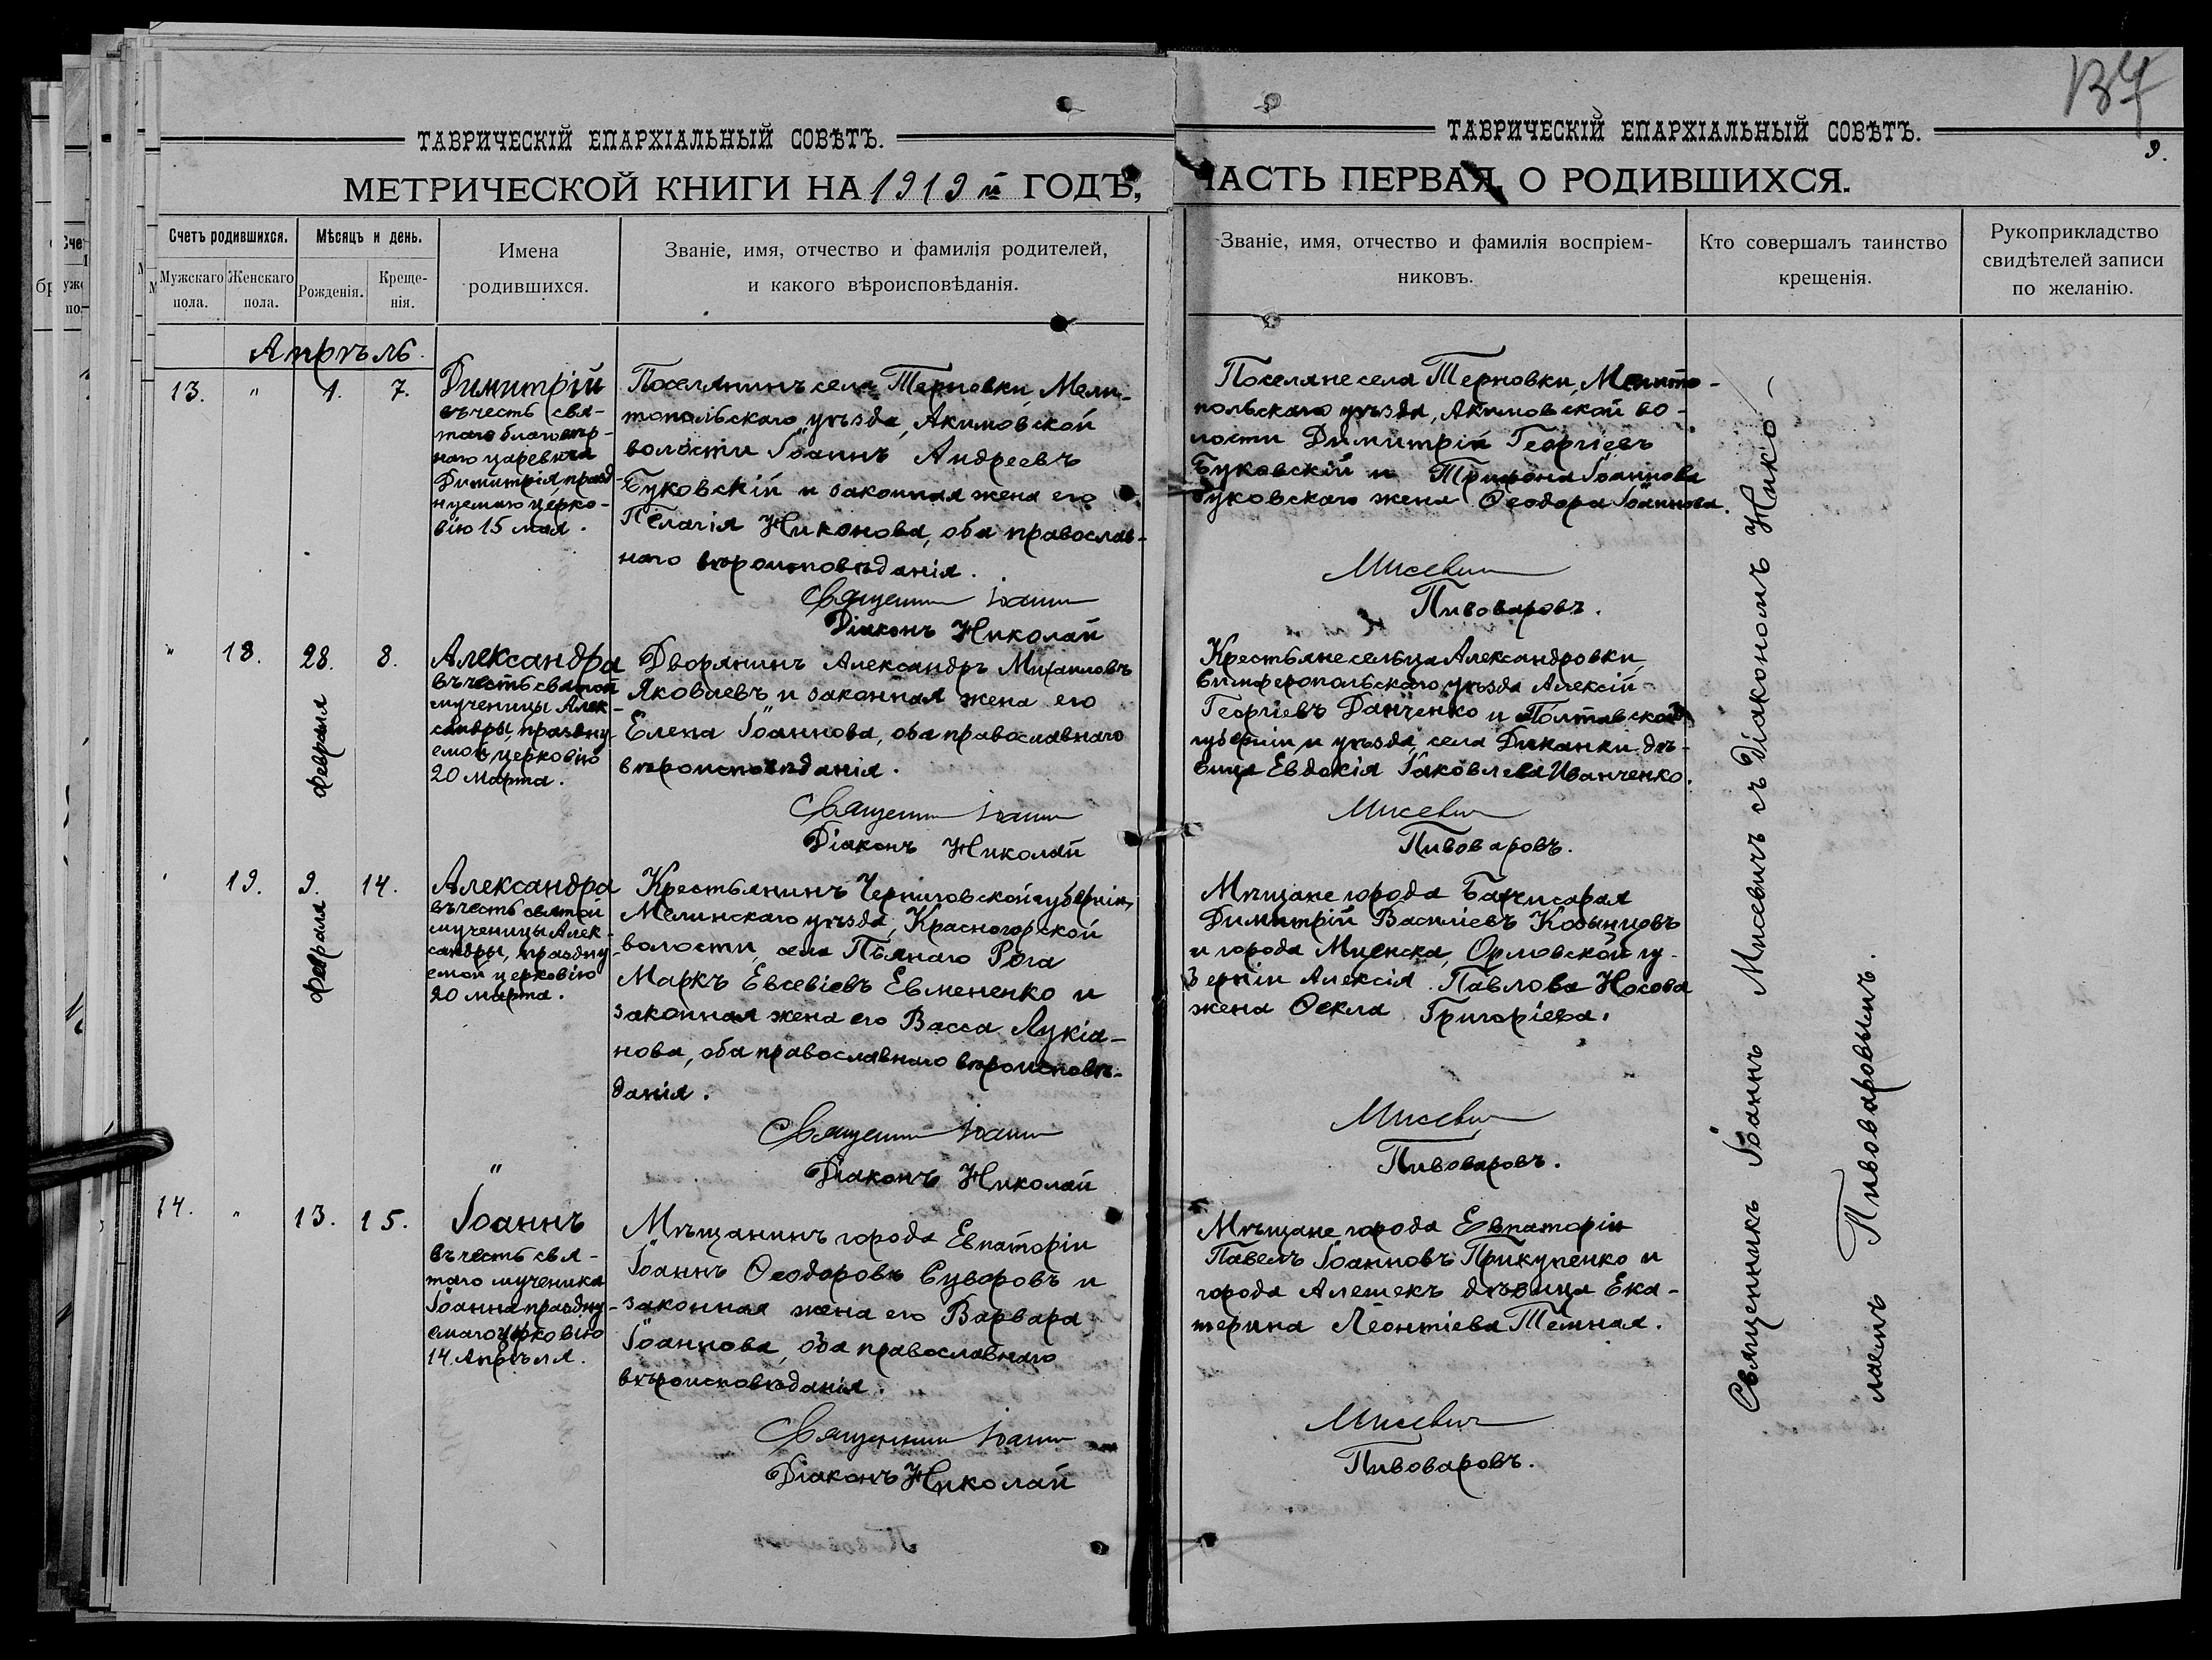 137
9.
ТАВРИЧЕСКІЙ ЕПАРХІАЛЬНЫЙ СОВѢТЪ.
МЕТРИЧЕСКОЙ КНИГИ НА 1919 й ГОДЪ,
Счетъ родившихся.
Мужскаго пола.
Женскаго пола.
Мѣсяцъ и день.
Рожденія.
Креще-
нія.
Имена
родившихся.
Званіе, имя, отчество и фамилія родителей,
и какого вѣроисповѣданія.
ТАВРИЧЕСКІЙ ЕПАРХІАЛЬНЫЙ СОВѢТЪ.
ЧАСТЬ ПЕРВАЯ, О РОДИВШИХСЯ.
Званіе, имя, отчество и фамилія воспріем-
никовъ.
Кто совершалъ таинство
крещенія.
Рукоприкладство
свидѣтелей записи
по желанію.
Апрѣль.
13. " 1. 7.
Димитрій
въ честь свя-
таго благовѣр-
наго царевича
Димитрія, празд-
нуемаго церко-
вію 15 мая.
Поселянинъ села Терновки, Мели-
топольскаго уѣзда, Акимовской
волости Іоаннъ Андреевъ
Буковскій и законная жена его
Пелагія Никонова, оба православ-
наго вѣроисповѣданія.
Священник Іоанн
Діаконъ Николай
Поселяне села Терновки, Мелито-
польскаго уѣзда, Акимовской во-
лости Димитрій Георгіевъ
Буковскій и Трифона Іоаннова
Буковскаго жена Ѳеодора Іоаннова.
Мисевич
Пивоваровъ.
" 18. 28. 8.
февраля
Александра
въ честь святой
мученицы Алек-
сандры, праздну-
емой церковію
20 марта.
Дворянинъ Александръ Михаиловъ
Яковлевъ и законная жена его
Елена Іоаннова, оба православнаго
вѣроисповѣданія.
Священник Іоанн
Діаконъ Николай
Крестьяне сельца Александровки,
Симферопольскаго уѣзда Алексій
Георгіевъ Данченко и Полтавской
губерніи и уѣзда, села Диканки дѣ-
вица Евдокія Іаковлева Иванченко.
Мисевич
Пивоваровъ.
" 19. 9. 14.
февраля
Александра
въ честь святой
мученицы Алек-
сандры, праздну-
емой церковію
20 марта.
Крестьянинъ Черниговской губерніи,
Мглинскаго уѣзда, Красногорской
волости, села Пьянаго Рога
Маркъ Евсевіевъ Евмененко и
законная жена его Васса Лукіа-
нова, оба православнаго вѣроисповѣ-
данія.
Священник Іоанн
Діаконъ Николай
Мѣщане города Бахчисарая
Димитрій Василіевъ Кобынцовъ
и города Мценска, Орловской гу-
берніи Алексія Павлова Носова
жена Ѳекла Григоріева.
Мисевич
Пивоваровъ.
14. " 13. 15.
Іоаннъ
въ честь свя-
таго мученика
Іоанна праздну-
емаго церковію
14 Апрѣля.
Мѣщанинъ города Евпаторіи
Іоаннъ Ѳеодоровъ Суворовъ и
законная жена его Варвара
Іоаннова, оба православнаго
вѣроисповѣданія.
Священник Іоанн
Діаконъ Николай
Мѣщане города Евпаторіи
Павелъ Іоанновъ Прикупенко и
города Алешекъ дѣвица Ека-
терина Леонтіева Темная.
Мисевич
Пивоваровъ.
Священникъ Іоаннъ Мисевичъ съ діакономъ Нико-
лаемъ Пивоваровымъ.